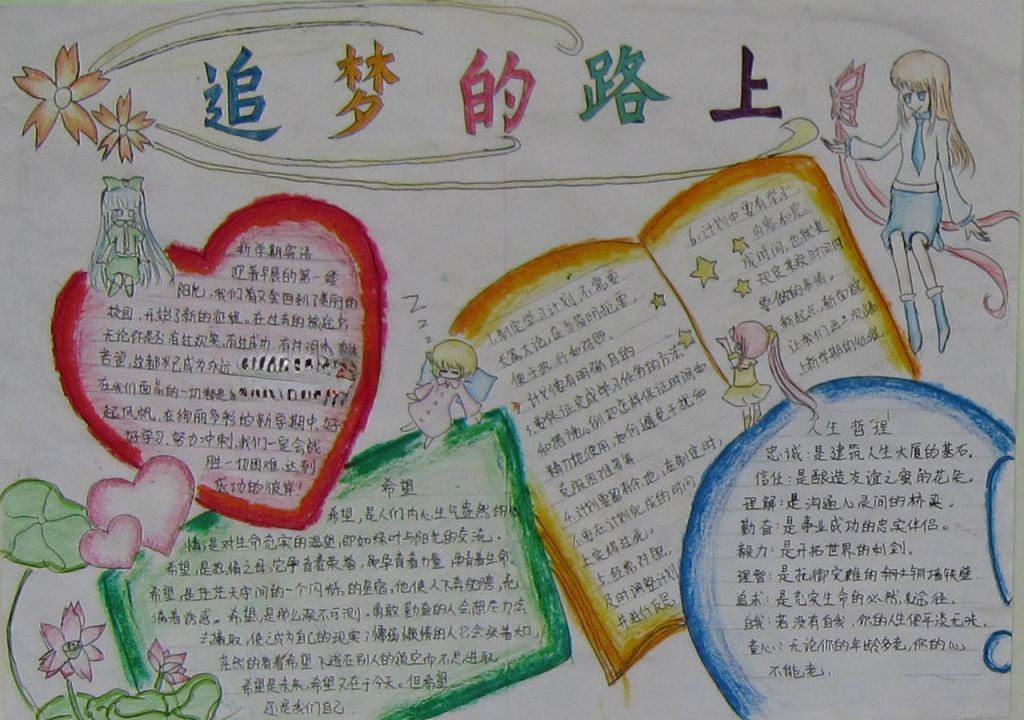 追梦的路上
新学期寄语
迎着早晨的第一缕
阳光,我们又会回到了美丽的
校园,开始了新的征程。在过去的旅途中,
无论你是否有过欢笑,有过成功,有过
苦涩,这都已成为永远
在我们面前的一切都是
起风帆,在绚丽多彩的新学期中,好
好学习,努力冲刺,我们一定会战
胜一切困难,达到
成功的彼岸!
希望
希望,是人们内心生气盎然的
情,是对生命充实的渴望,即如绿叶与阳光的交流。
希望,是热情之母,它孕育着荣誉,孕育着力量,孕育着生命。
希望,是茫茫天宇间的一个闪烁的星宿,他使人下弃
满着诱惑。希望,是那么深不可测。勇敢勤奋的人会想尽力法
去摘取,使之成为自己的现实;懦弱懒惰的人只会张着大口,
茫然的看着希望下
希望是未来,希望又在于今天。但希望
还是我们自己
1.制定学习计划,不需要
长篇大论,应当简明扼要,
便于执行和对照。
2.计划要有明确目的
3.要保证完成学习任务的方法
和措施。例如怎样保证时间和
精力地使用,如何避免干扰和
克服困难等等
4.计划要留有余地,在制定时,
不要在计划完成的时间
上定得过死。
5.经常对照,
及时调整计划
并进行反思
6.计划中要有学习
内容和完
成时间,也就是
规定某段时间内
要做的事情。
新起点,新面貌
让我们再一次踏
上新学期的征程
人生哲理
忠诚:是建筑人生大厦的基石。
信任:是酿造友谊之蜜的花朵。
理解:是沟通心灵间的桥梁。
勤奋:是事业成功的忠实伴侣。
毅力:是开拓世界的利剑。
理智:是抵御灾难的铜墙铁壁
追求:是充实生命的必然途径。
自我:若没有自我,你的人生便平淡无味。
童心:无论你的年龄多老,你的心
不能老.